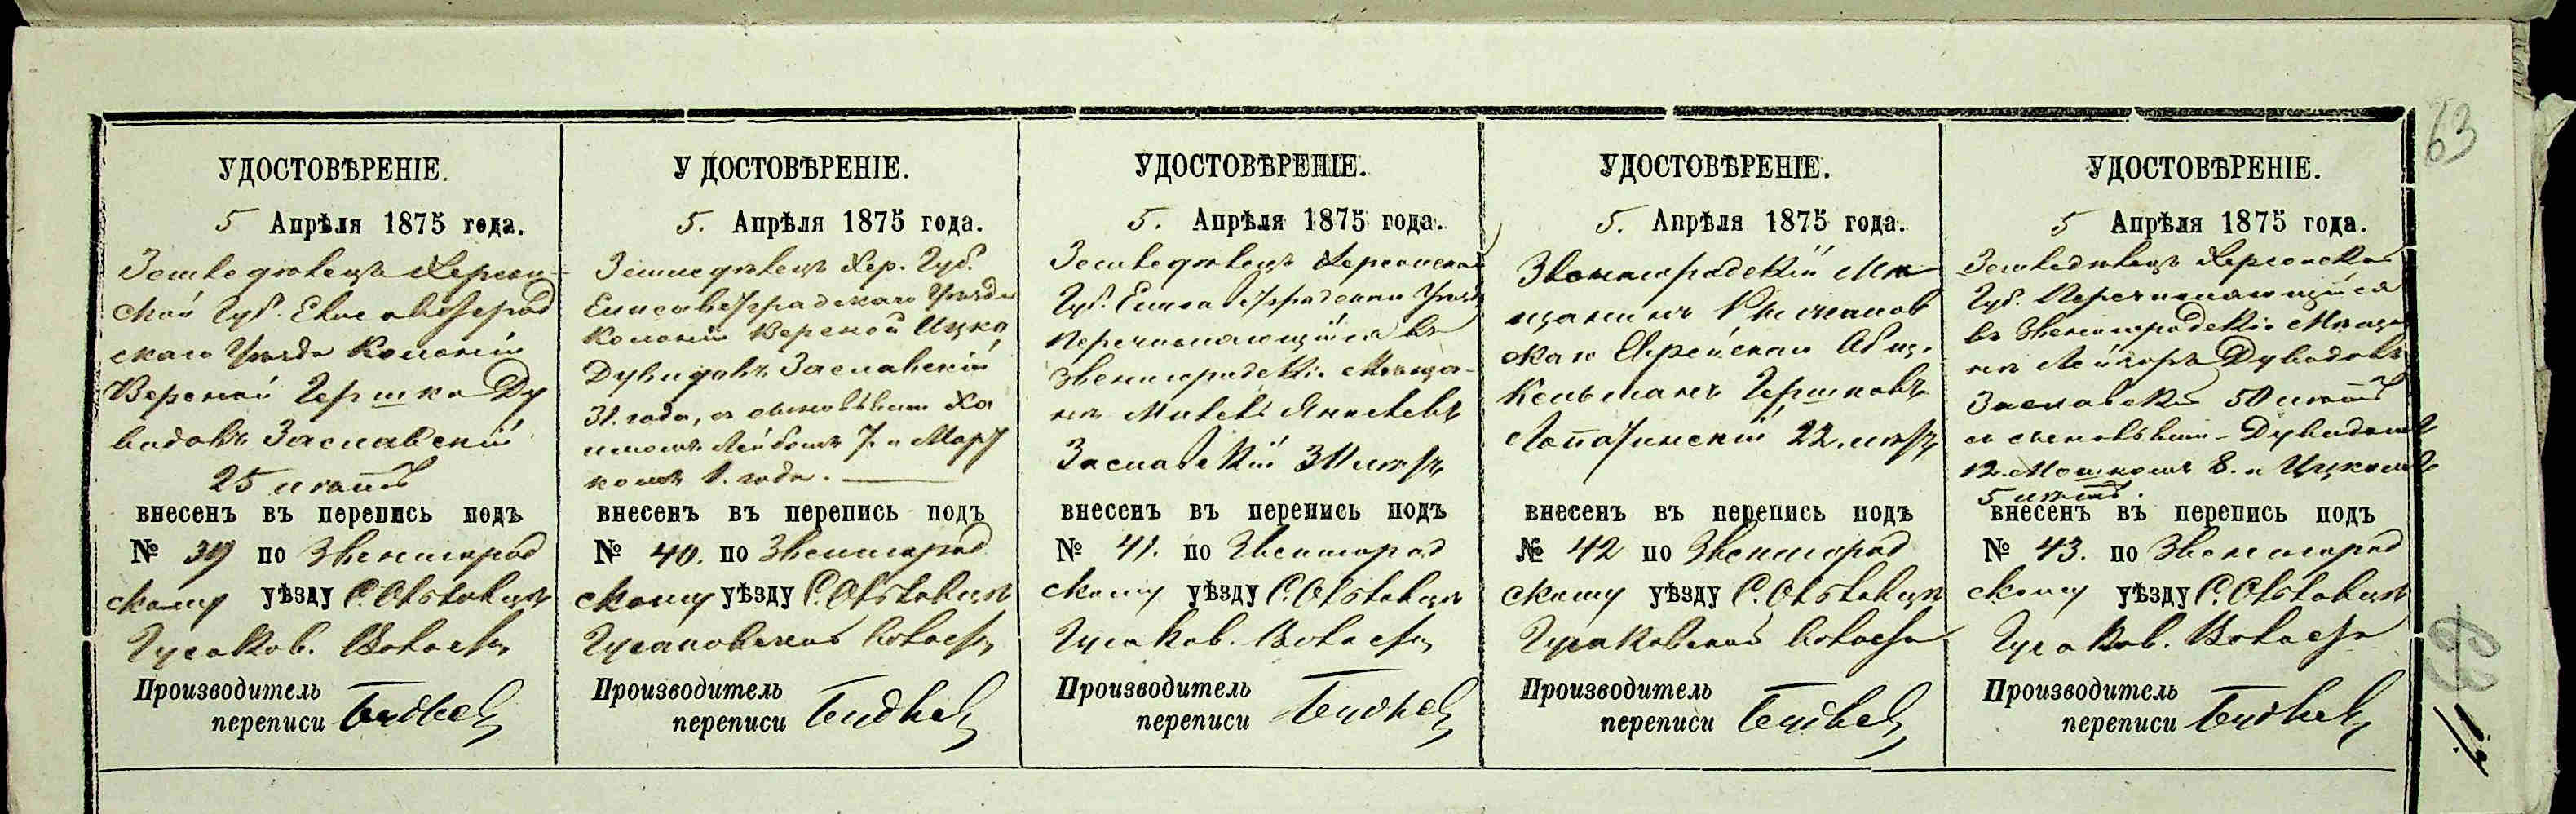 63
УДОСТОВѢРЕНІЕ.
5 Апрѣля 1875 года.
Земледѣлецъ Херсон-
ской Губ. Елисаветград
скаго Уѣзда Колоніи
Гершко Ду
видовъ Заславскій
25 лѣтъ
внесенъ въ перепись подъ
№ 39 по Звенигород
скому уѣзду С.
Гусаков. Волости
Производитель
переписи
У ДОСТОВѢРЕНІЕ.
5. Апрѣля 1875 года.
Земледѣлецъ Хер. Губ.
Елисаветградскаго Уѣзда
Колоніи Ицко
Дувидовъ Заславскій
31. года, съ сыновьями Ха
имомъ Лейбомъ 7. иМорт
комъ 1. года.
внесенъ въ перепись подъ
№ 40. по Звенигород
скому уѣзду С.
Гусаковской волости
Производитель
переписи
УДОСТОВѢРЕНІЕ.
5. Апрѣля 1875 года.
Земледѣлецъ Херсонской
Губ. Елисаветградскаго Уѣзда
перечисляющійся въ
Звенигородскіе Мѣща-
не Янкелевъ
Заславскій 31 лѣтъ
внесенъ въ перепись подъ
№ 41. по Звенигород
скому уѣзду С.
Гусаков. Волости
Производитель
переписи
УДОСТОВѢРЕНІЕ.
5. Апрѣля 1875 года.
Звенигородскій Мѣ
щанинъ
скаго Еврейскаго Общ.
Кельманъ Гершковъ
Лопатинскій 22. лѣтъ
внесенъ въ перепись подъ
№ 42 по Звенигород
скому уѣзду С.
Гусаковской волости
Производитель
переписи
УДОСТОВѢРЕНІЕ.
5 Апрѣля 1875 года.
Земледѣлецъ Херсонской
Губ. Перечисляющійся
въ Звенигородскіе Мѣща
не Дувидовъ
Заславскій 50 лѣтъ
съ сыновьями - Дувидомъ
12. Мошкомъ 8. и Ицкомъ
5 лѣтъ.
внесенъ въ перепись подъ
№ 43. по Звенигород
скому уѣзду С.
Гусаков. Волости
Производитель
переписи